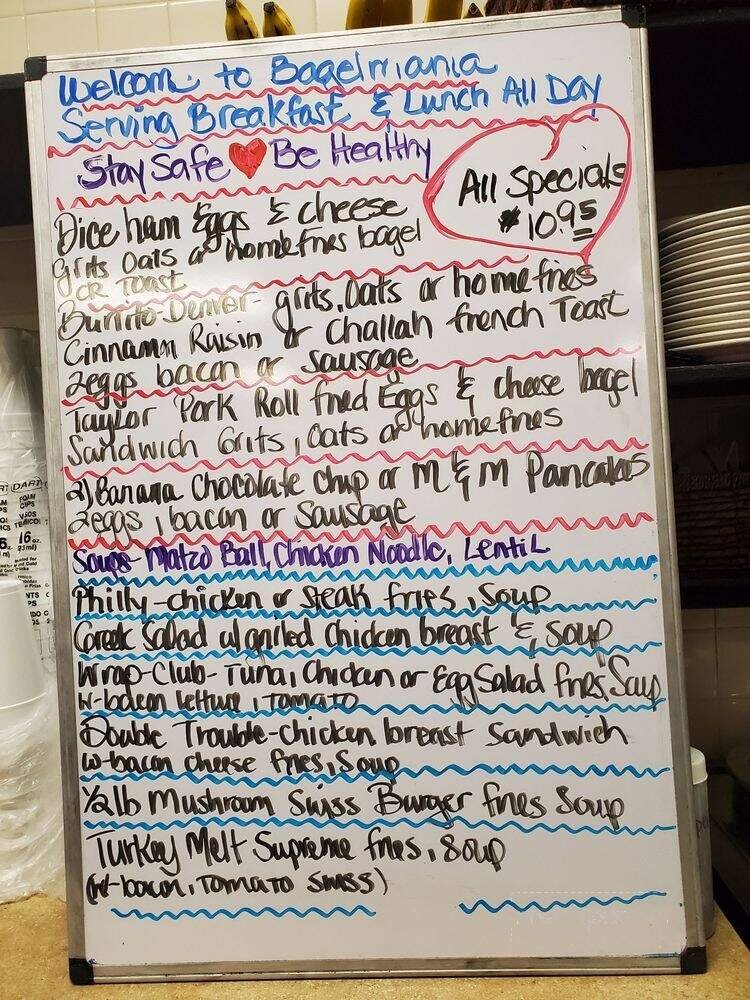 Welcom to Bagelmania
Serving Breakfast & Lunch All Day
Stay Safe Be Healthy
All Specials
$10.95
Dice ham Eggs & cheese
grits Oats or homefries bagel
OR Toast
Burrito-Denver- grits, Oats or homefries
Cinnamon Raisin or Challah french Toast
2eggs bacon or sausage
Taylor Pork Roll fried Eggs & cheese bagel
Sandwich Grits, Oats or homefries
2) Banana Chocolate Chip or M & M Pancakes
2eggs, bacon or Sausage
Soups- Matzo Ball, Chicken Noodle, Lentil
Philly-chicken or Steak fries, Soup
Greek Salad w/ grilled Chicken breast & soup
Wrap-Club- Tuna, Chicken or Egg Salad fries Soup
w-bacon lettuce, Tomato
Double Trouble-chicken breast Sandwich
w-bacon cheese fries, Soup
1/2 lb Mushroom Swiss Burger fries Soup
Turkey Melt Supreme fries, soup
(w-bacon, Tomato Swiss)
DART
FOAM
CUPS
16 oz